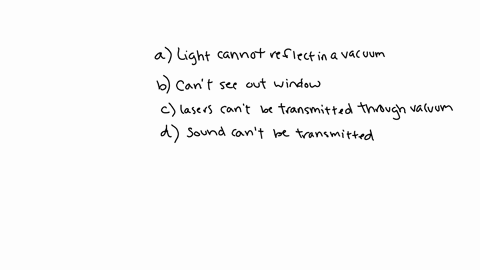 a) Light cannot reflect in a vacuum
b) Can't see out window
c) lasers can't be transmitted through vacuum
d) Sound can't be transmitted